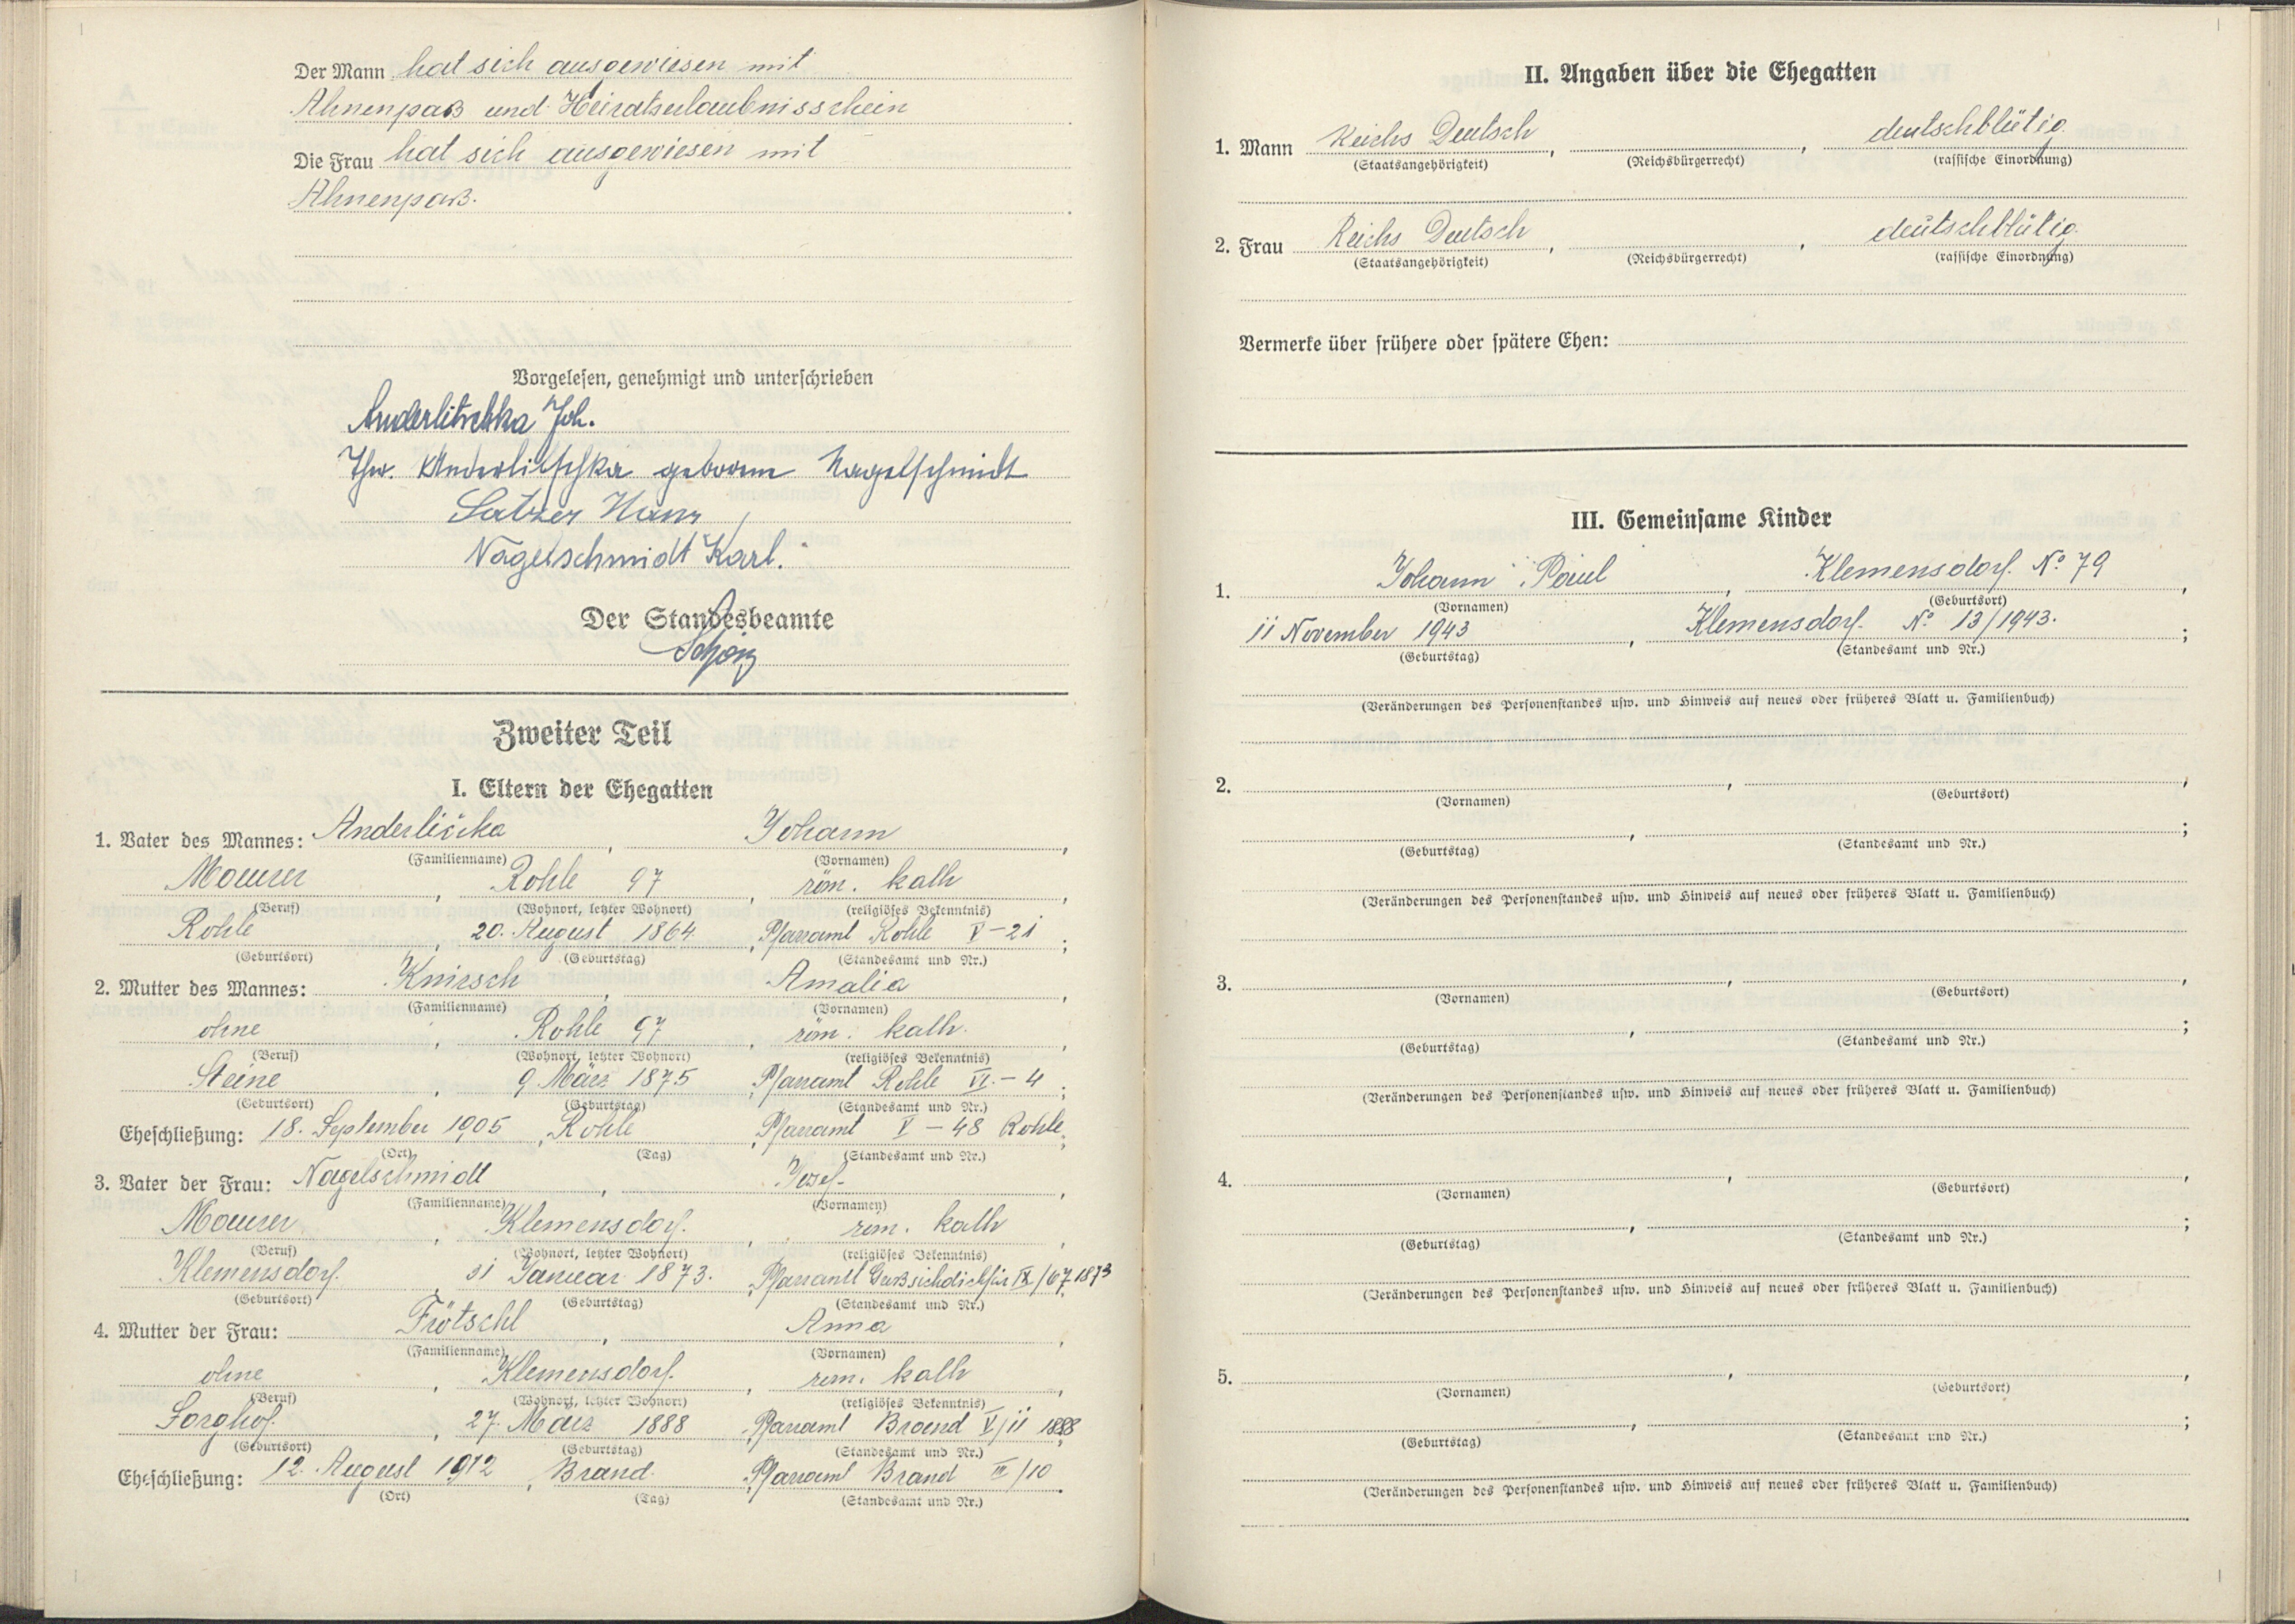 Der Mann hat sich ausgewiesen mit
Ahnenpaß und Heiratserlaubnisschein
Die Frau hat sich ausgewiesen mit
Ahnenpaß.
Vorgelesen, genehmigt und unterschrieben
Anderlitschka Joh.
Ther. Anderlitschka geborene Nagelschmidt
Satzer Hans
Nagelschmidt Karl.
Der Standesbeamte
Zweiter Teil
I. Eltern der Ehegatten
1. Vater des Mannes: Anderlička, Johann,
(Familienname) (Vornamen)
Maurer, Rohle 97, röm. kath,
(Beruf) (Wohnort, letzter Wohnort) (religiöses Bekenntnis)
Rohle, 20. August 1864, Pfarramt Rohle V-21;
(Geburtsort) (Geburtstag) (Standesamt und Nr.)
2. Mutter des Mannes: Knirsch, Amalia,
(Familienname) (Vornamen)
ohne, Rohle 97, röm. kath.,
(Beruf) (Wohnort, letzter Wohnort) (religiöses Bekenntnis)
Steine, 9. März 1875, Pfarramt Rohle VI.-4;
(Geburtsort) (Geburtstag) (Standesamt und Nr.)
Eheschließung: 18. September 1905, Rohle, Pfarramt V-48 Rohle;
(Ort) (Tag) (Standesamt und Nr.)
3. Vater der Frau: Nagelschmidt, Josef,
(Familienname) (Vornamen)
Maurer, Klemensdorf., röm. kath,
(Beruf) (Wohnort, letzter Wohnort) (religiöses Bekenntnis)
Klemensdorf., 31 Januar 1873., Pfarramt IX/67 1873
(Geburtsort) (Geburtstag) (Standesamt und Nr.)
4. Mutter der Frau: Frötschl, Anna,
(Familienname) (Vornamen)
ohne, Klemensdorf., röm. kath,
(Beruf) (Wohnort, letzter Wohnort) (religiöses Bekenntnis)
Sorghof., 27. März 1888, Pfarramt Brand V/11 1888;
(Geburtsort) (Geburtstag) (Standesamt und Nr.)
Eheschließung: 12. August 1912, Brand., Pfarramt Brand III/10.
(Ort) (Tag) (Standesamt und Nr.)
II. Angaben über die Ehegatten
1. Mann Reichs Deutsch, , deutschblütig.
(Staatsangehörigkeit) (Reichsbürgerrecht) (rassische Einordnung)
2. Frau Reichs Deutsch, , deutschblütig.
(Staatsangehörigkeit) (Reichsbürgerrecht) (rassische Einordnung)
Vermerke über frühere oder spätere Ehen:
III. Gemeinsame Kinder
1. Johann Paul, Klemensdorf. No 79,
(Vornamen) (Geburtsort)
11 November 1943, Klemensdorf. No 13/1943.;
(Geburtstag) (Standesamt und Nr.)
(Veränderungen des Personenstandes usw. und Hinweis auf neues oder früheres Blatt u. Familienbuch)
2. , ,
(Vornamen) (Geburtsort)
, ;
(Geburtstag) (Standesamt und Nr.)
(Veränderungen des Personenstandes usw. und Hinweis auf neues oder früheres Blatt u. Familienbuch)
3. , ,
(Vornamen) (Geburtsort)
, ;
(Geburtstag) (Standesamt und Nr.)
(Veränderungen des Personenstandes usw. und Hinweis auf neues oder früheres Blatt u. Familienbuch)
4. , ,
(Vornamen) (Geburtsort)
, ;
(Geburtstag) (Standesamt und Nr.)
(Veränderungen des Personenstandes usw. und Hinweis auf neues oder früheres Blatt u. Familienbuch)
5. , ,
(Vornamen) (Geburtsort)
, ;
(Geburtstag) (Standesamt und Nr.)
(Veränderungen des Personenstandes usw. und Hinweis auf neues oder früheres Blatt u. Familienbuch)